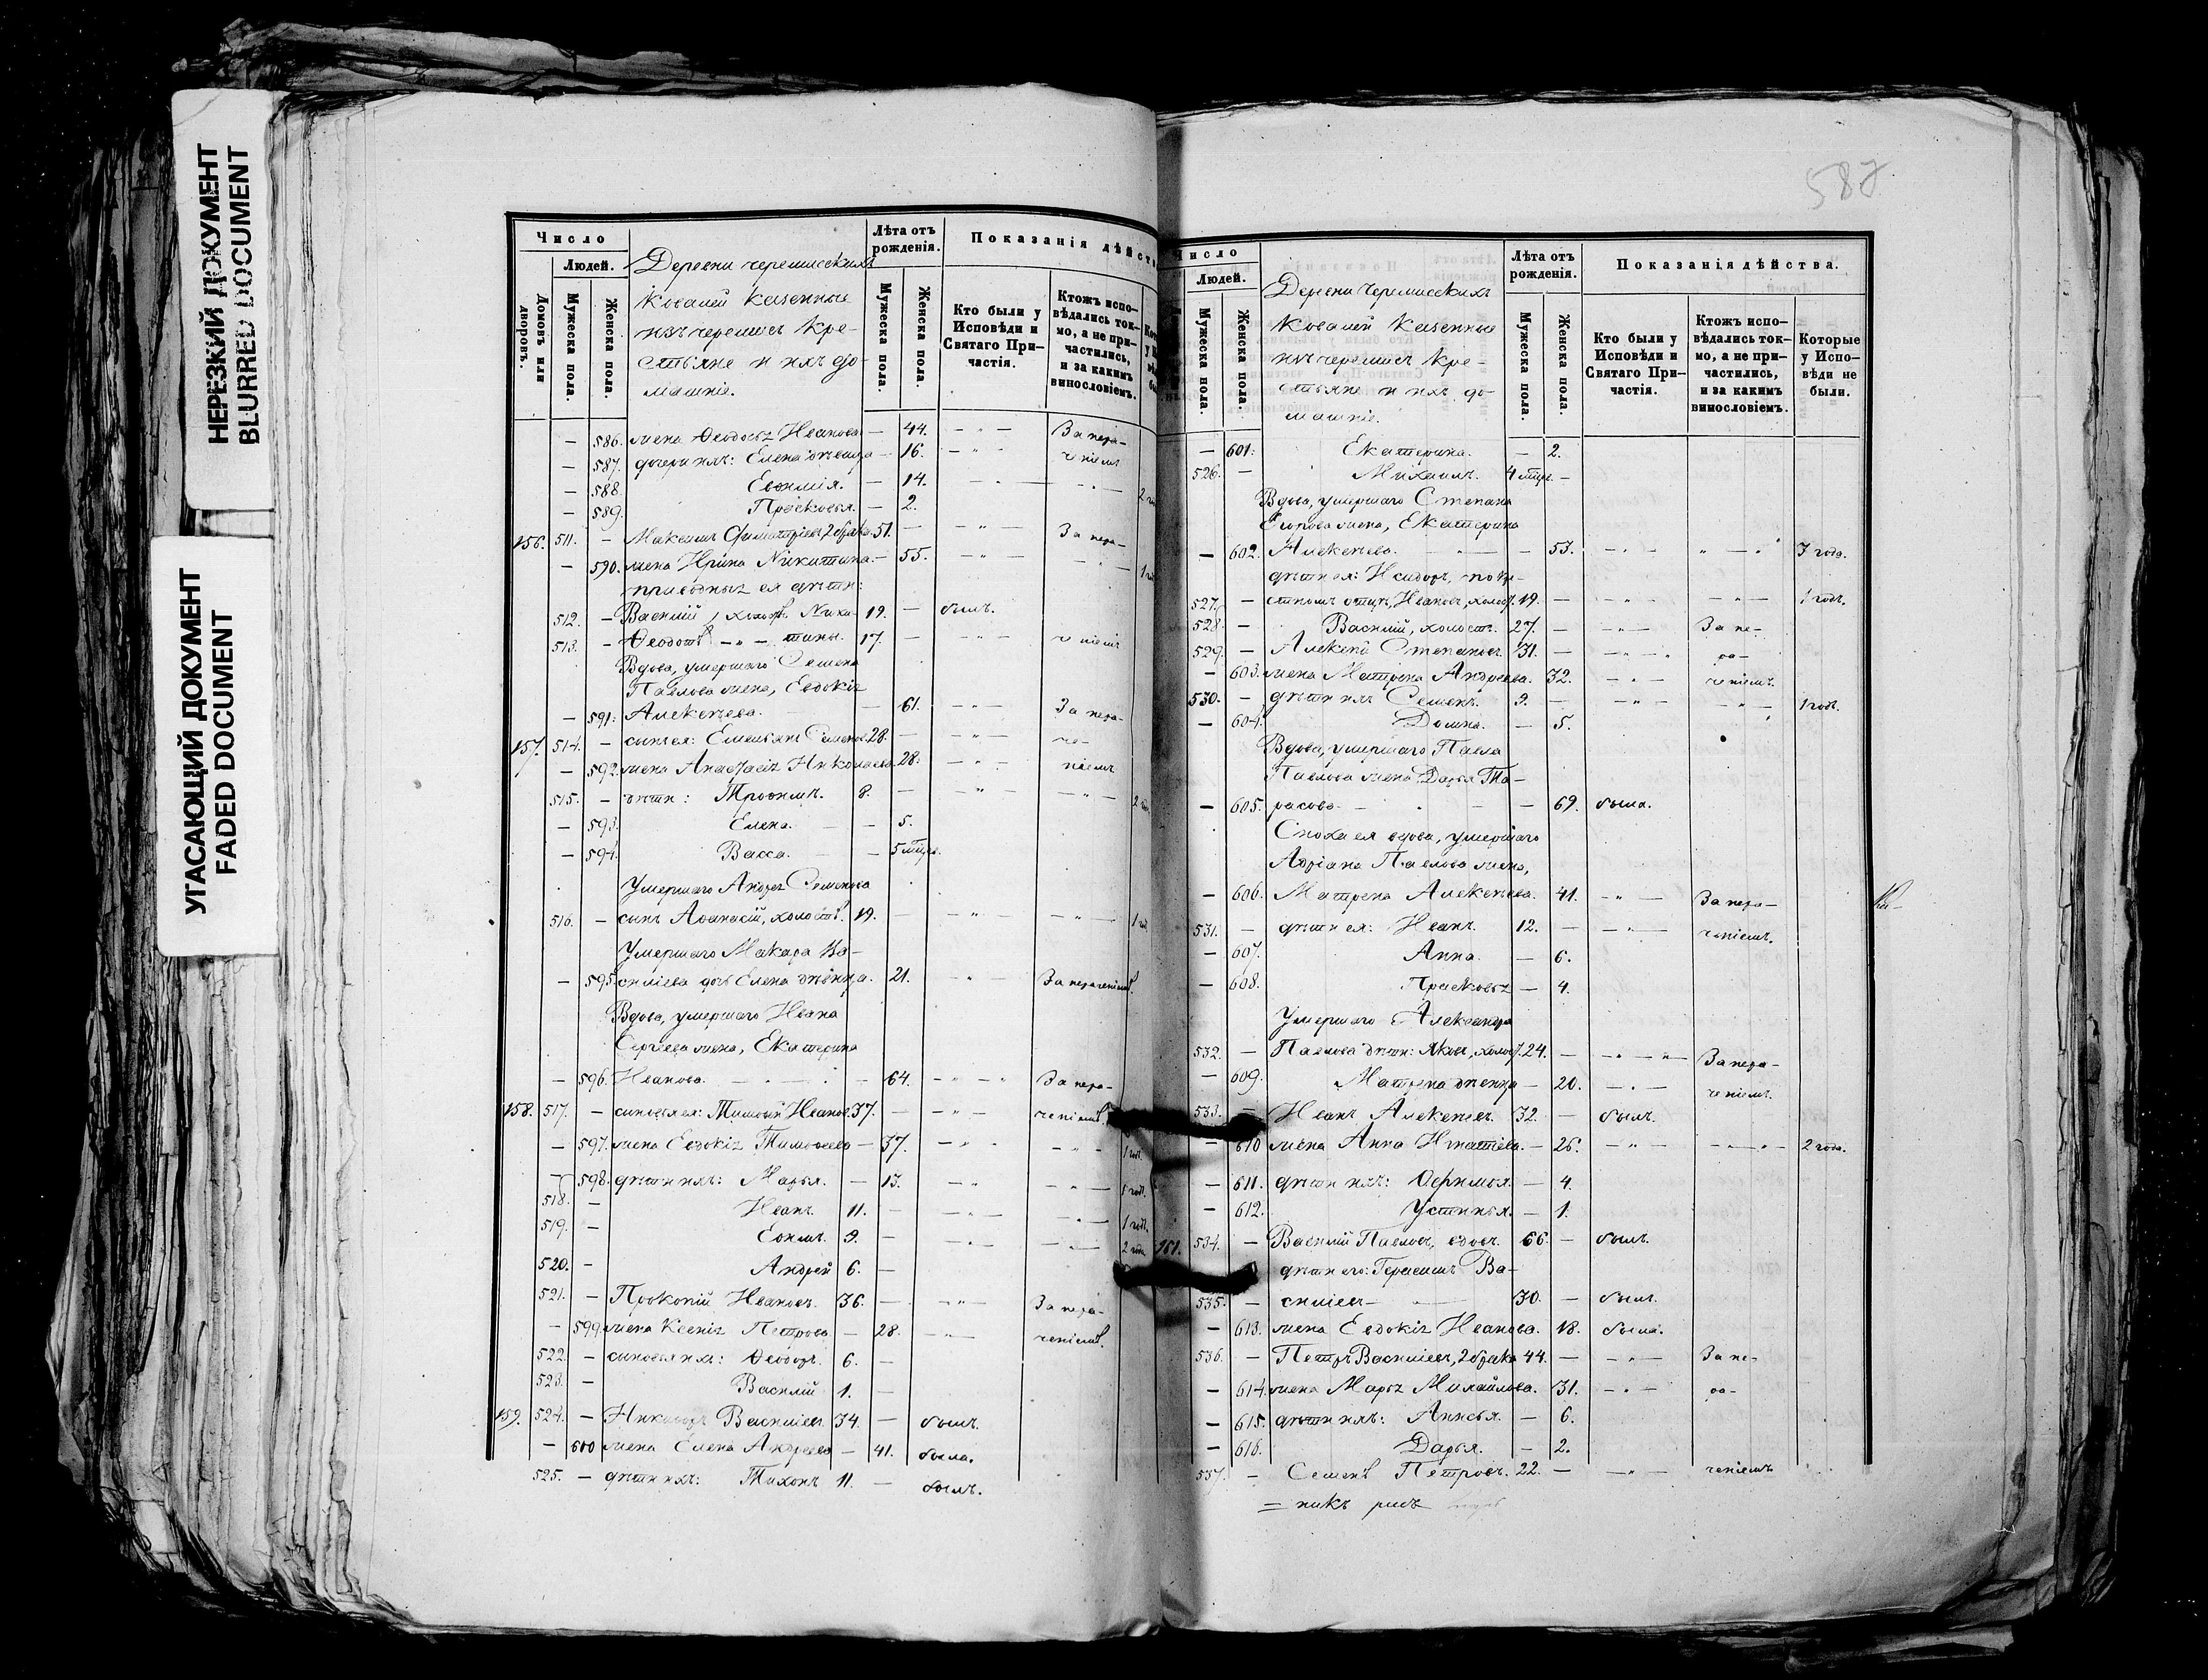 НЕРЕЗКИЙ ДОКУМЕНТ
BLURRED DOCUMENT
УГАСАЮЩИЙ ДОКУМЕНТ
FADED DOCUMENT
587
Число
Людей.
Домовъ или дворовъ.
Мужеска пола.
Женска пола.
Деревни черемисскихъ
Ковалей казенные
изъ черемисъ кре-
стьяне и ихъ до-
машніе.
Лѣта отъ рожденія.
Мужеска пола.
Женска пола.
Показанія дѣйств
Кто были у Исповѣди и Святаго При- частія.
Ктожъ испо- вѣдались ток- мо, а не при- частились, и за какимъ винословіемъ.
— 586. жена Ѳеодосья Иванова — 44. — " — За нера-
— 587. дочери ихъ: Елена дѣвица — 16. — " — ченіемъ
— 588. Евфимія. — 14. — " — — " —
— 589. Прасковья. — 2.
156. 511. — Максимъ Димитріевъ 2 брака. 51. — — " — За нера-
— 590. жена Ирина Никитина. — 55. — " — — " —
приводныя ея дѣти:
512. — Василій, холостъ Ники- 19. — былъ.
513. — Ѳеодотъ — " — тины. 17. — — " — ченіемъ
Вдова, умершаго Семена
Павлова жена, Евдокія
— 591. Алексѣева. — 61. — " — За нера-
157. 514. — сынъ ея: Емельянъ Семенов. 28. — — " — че-
— 592. жена Анастасія Николаева 28. — " — ніемъ
515. — дѣти: Трофимъ. 8. — — " — — " —
— 593. Елена. — — 5.
— 594. Васса. — — 5 мѣс.
Умершаго Андрея Семенова
516. — сынъ Афанасій, холостъ. 19. — — " — — " —
Умершаго Макара Ва-
— 595. силіева дочь Елена дѣвица. 21. — " — За нераченіемъ.
Вдова, умершаго Ивана
Сергѣева жена, Екатерина
— 596. Иванова. — 64. — " — За нера-
158. 517. — сыновья ея: Тимофей Иванов. 37. — — " — ченіемъ.
— 597. жена Евдокія Тимофеева — 37. — " — — " — 1 годъ.
— 598. дѣти ихъ: Марья. — 13. — " — — " — 1 годъ.
518. — Иванъ. 11. — — " — — " — 1 годъ.
519. — Ефимъ. 9. — — " — — " — 2 года
520. — Андрей 6. —
521. — Прокопій Ивановъ. 36. — — " — За нера-
— 599. жена Ксенія Петрова — 28. — " — ченіемъ.
522. — сыновья ихъ: Ѳеодоръ. 6. —
523. — Василій 1. —
159. 524. — Никаноръ Василіевъ 34. — былъ.
— 600 жена Елена Андреева — 41. была.
525. — дѣти ихъ: Тихонъ 11. — былъ.
Число
Людей.
Мужеска пола.
Женска пола.
Деревни черемисскихъ
Ковалей казенные
изъ черемисъ кре-
стьяне и ихъ до-
машніе.
Лѣта отъ рожденія.
Мужеска пола.
Женска пола.
Показанія дѣйства.
Кто были у Исповѣди и Святаго При- частія.
Ктожъ испо- вѣдались ток- мо, а не при- частились, и за какимъ винословіемъ.
Которые у Испо- вѣди не были.
— 601. Екатерина. — 2.
526. — Михаилъ. 4 мѣс. —
Вдова, умершаго Степана
Егорова жена, Екатерина
— 602. Алексѣева. — " — — 53. — " — " — " 3 года.
дѣти ея: Исидоръ, по кре-
527. — стномъ отцѣ, Ивановъ, холост. 19. — — " — — " — 1 годъ.
528. — Василій, холостъ. 27. — — " — За не-
529. — Алексѣй Степановъ. 31. — — " — ра-
— 603. жена Матрена Андреева. 32. — " — ченіемъ.
530. — дѣти ихъ Семенъ. 9. — — " — — " — 1 годъ.
— 604. Домна. — 5.
Вдова, умершаго Павла
Павлова жена Дарья Та-
— 605. расова. — — 69. была.
Сноха ея вдова, умершаго
Адріана Павлова жена,
— 606. Матрена Алексѣева. 41. — " — За нера-
531. — дѣти ея: Иванъ. 12. — — " — ченіемъ.
— 607. Анна. — 6.
— 608. Прасковья — 4.
Умершаго Александра
532. — Павлова дѣти: Яковъ, холост. 24. — — " — За нера-
— 609. Матрена дѣвица — 20. — " — ченіемъ.
533. — Иванъ Алексѣевъ. 32. — былъ.
— 610 жена Анна Игнатіева. — 26. — " — — " — 2 года.
— 611. дѣти ихъ: — 4.
— 612. Устинья. — 1.
161. 534. — Василій Павловъ, вдовъ. 66. — былъ.
дѣти его: Герасимъ Ва-
535. — силіевъ — 30. — былъ.
— 613. жена Евдокія Иванова. 18. была.
536. — Петръ Василіевъ, 2 брака 44. — — " — За не-
— 614. жена Марья Михайлова. 31. — " — ра-
— 615. дѣти ихъ: Анисья. — 6.
— 616. Дарья. — 2.
537. — Семенъ Петровъ. 22. — — " — ченіемъ